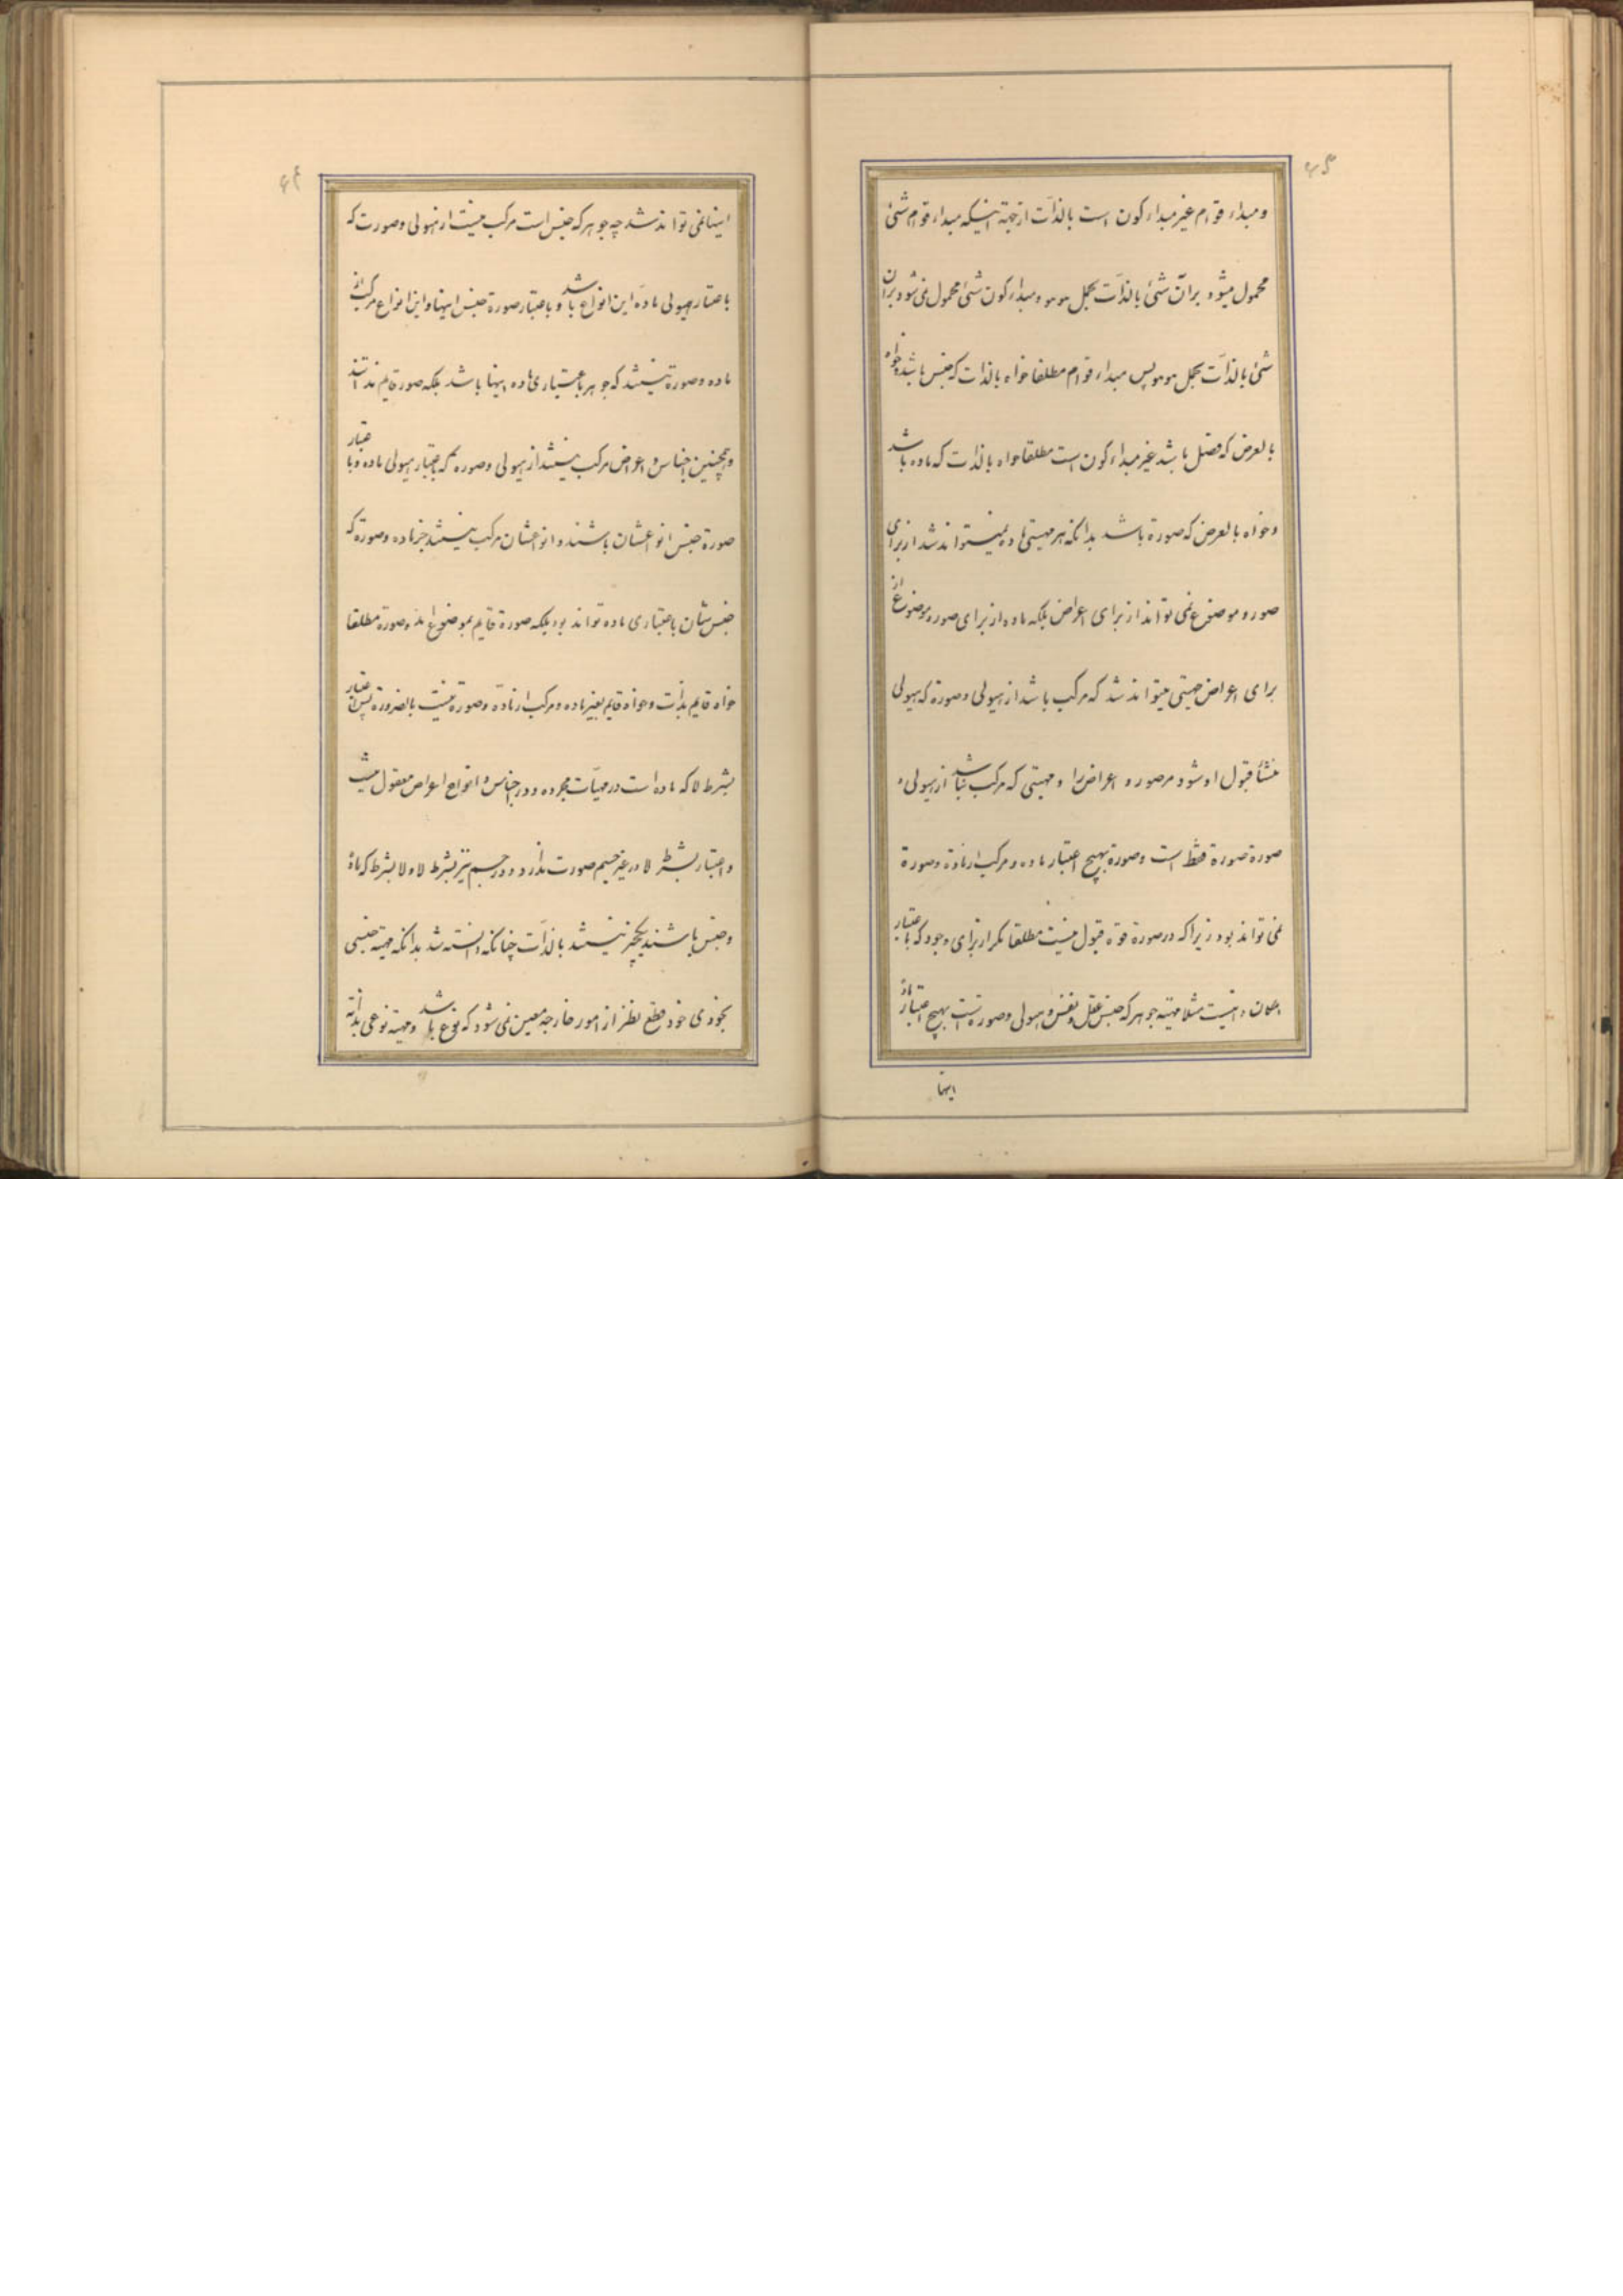 ۴۵
و مبداء قوام غیر مبداء کون است بالذات از جهة اینکه مبداء قوام شئ
محمول میشود بر آن شئ بالذات بحمل هو هو و مبداء کون شئ محمول نمی شود بر آن
شئ بالذات بحمل هو هو پس مبداء قوام مطلقا خواه بالذات که جنس باشد و خواه
بالعرض که فصل باشد غیر مبداء کون است مطلقا خواه بالذات که ماده باشد
و خواه بالعرض که صورة باشد بدانکه هر مهیتی ماده نمیتواند شد از برای
صور و موضوع نمی تواند از برای اعراض بلکه ماده از برای صور و موضوع از
برای اعراض مهیتی میتواند شد که مرکب باشد از هیولی و صورة که هیولی
منشأ قبول او شود مر صور و اعراض را و مهیتی که مرکب نباشد از هیولی و
صورة صورة فقط است و صورة بهیچ اعتبار ماده و مرکب از ماده و صورة
نمی تواند بود زیرا که در صورة قوه قبول نیست مطلقا مگر از برای وجود که باعتبار
امکان ذاتیست مثلا مهیته جوهر که جنس عقل و نفس و هیولی و صورتست بهیچ اعتبار ماده
اینها
۴۶
اینها نمی تواند شد چه جوهر که جنس است مرکب نیست از هیولی و صورت که
باعتبار هیولی ماده این انواع باشد و باعتبار صورة جنس اینها و این انواع مرکب از
ماده و صورة نیستند که جوهر باعتباری ماده اینها باشد بلکه صور قایم بذاتند
و همچنین اجناس اعراض مرکب نیستند از هیولی و صورة که باعتبار هیولی ماده و باعتبار
صورة جنس انواعشان باشند و انواعشان مرکب نیستند از ماده و صورة که
جنس شان باعتباری ماده تواند بود بلکه صورة قایم بموضوع اند و صورة مطلقا
خواه قایم بذات و خواه قایم بغیر ماده و مرکب از ماده و صورة نیست بالضرورة پس اعتبار
بشرط لا که ماده است در مهیات مجرده و در اجناس و انواع اعراض معقول نیست
و اعتبار بشرط لا در غیر جسم صورت ندارد و در جسم نیز بشرط لا و لا بشرط که ماده
و جنس باشند یکچیز نیستند بالذات چنانکه دانسته شد بدانکه مهیته جنسی
بخودی خود قطع نظر از امور خارجه معین نمی شود که نوع باشد و مهیته نوعی بذاته